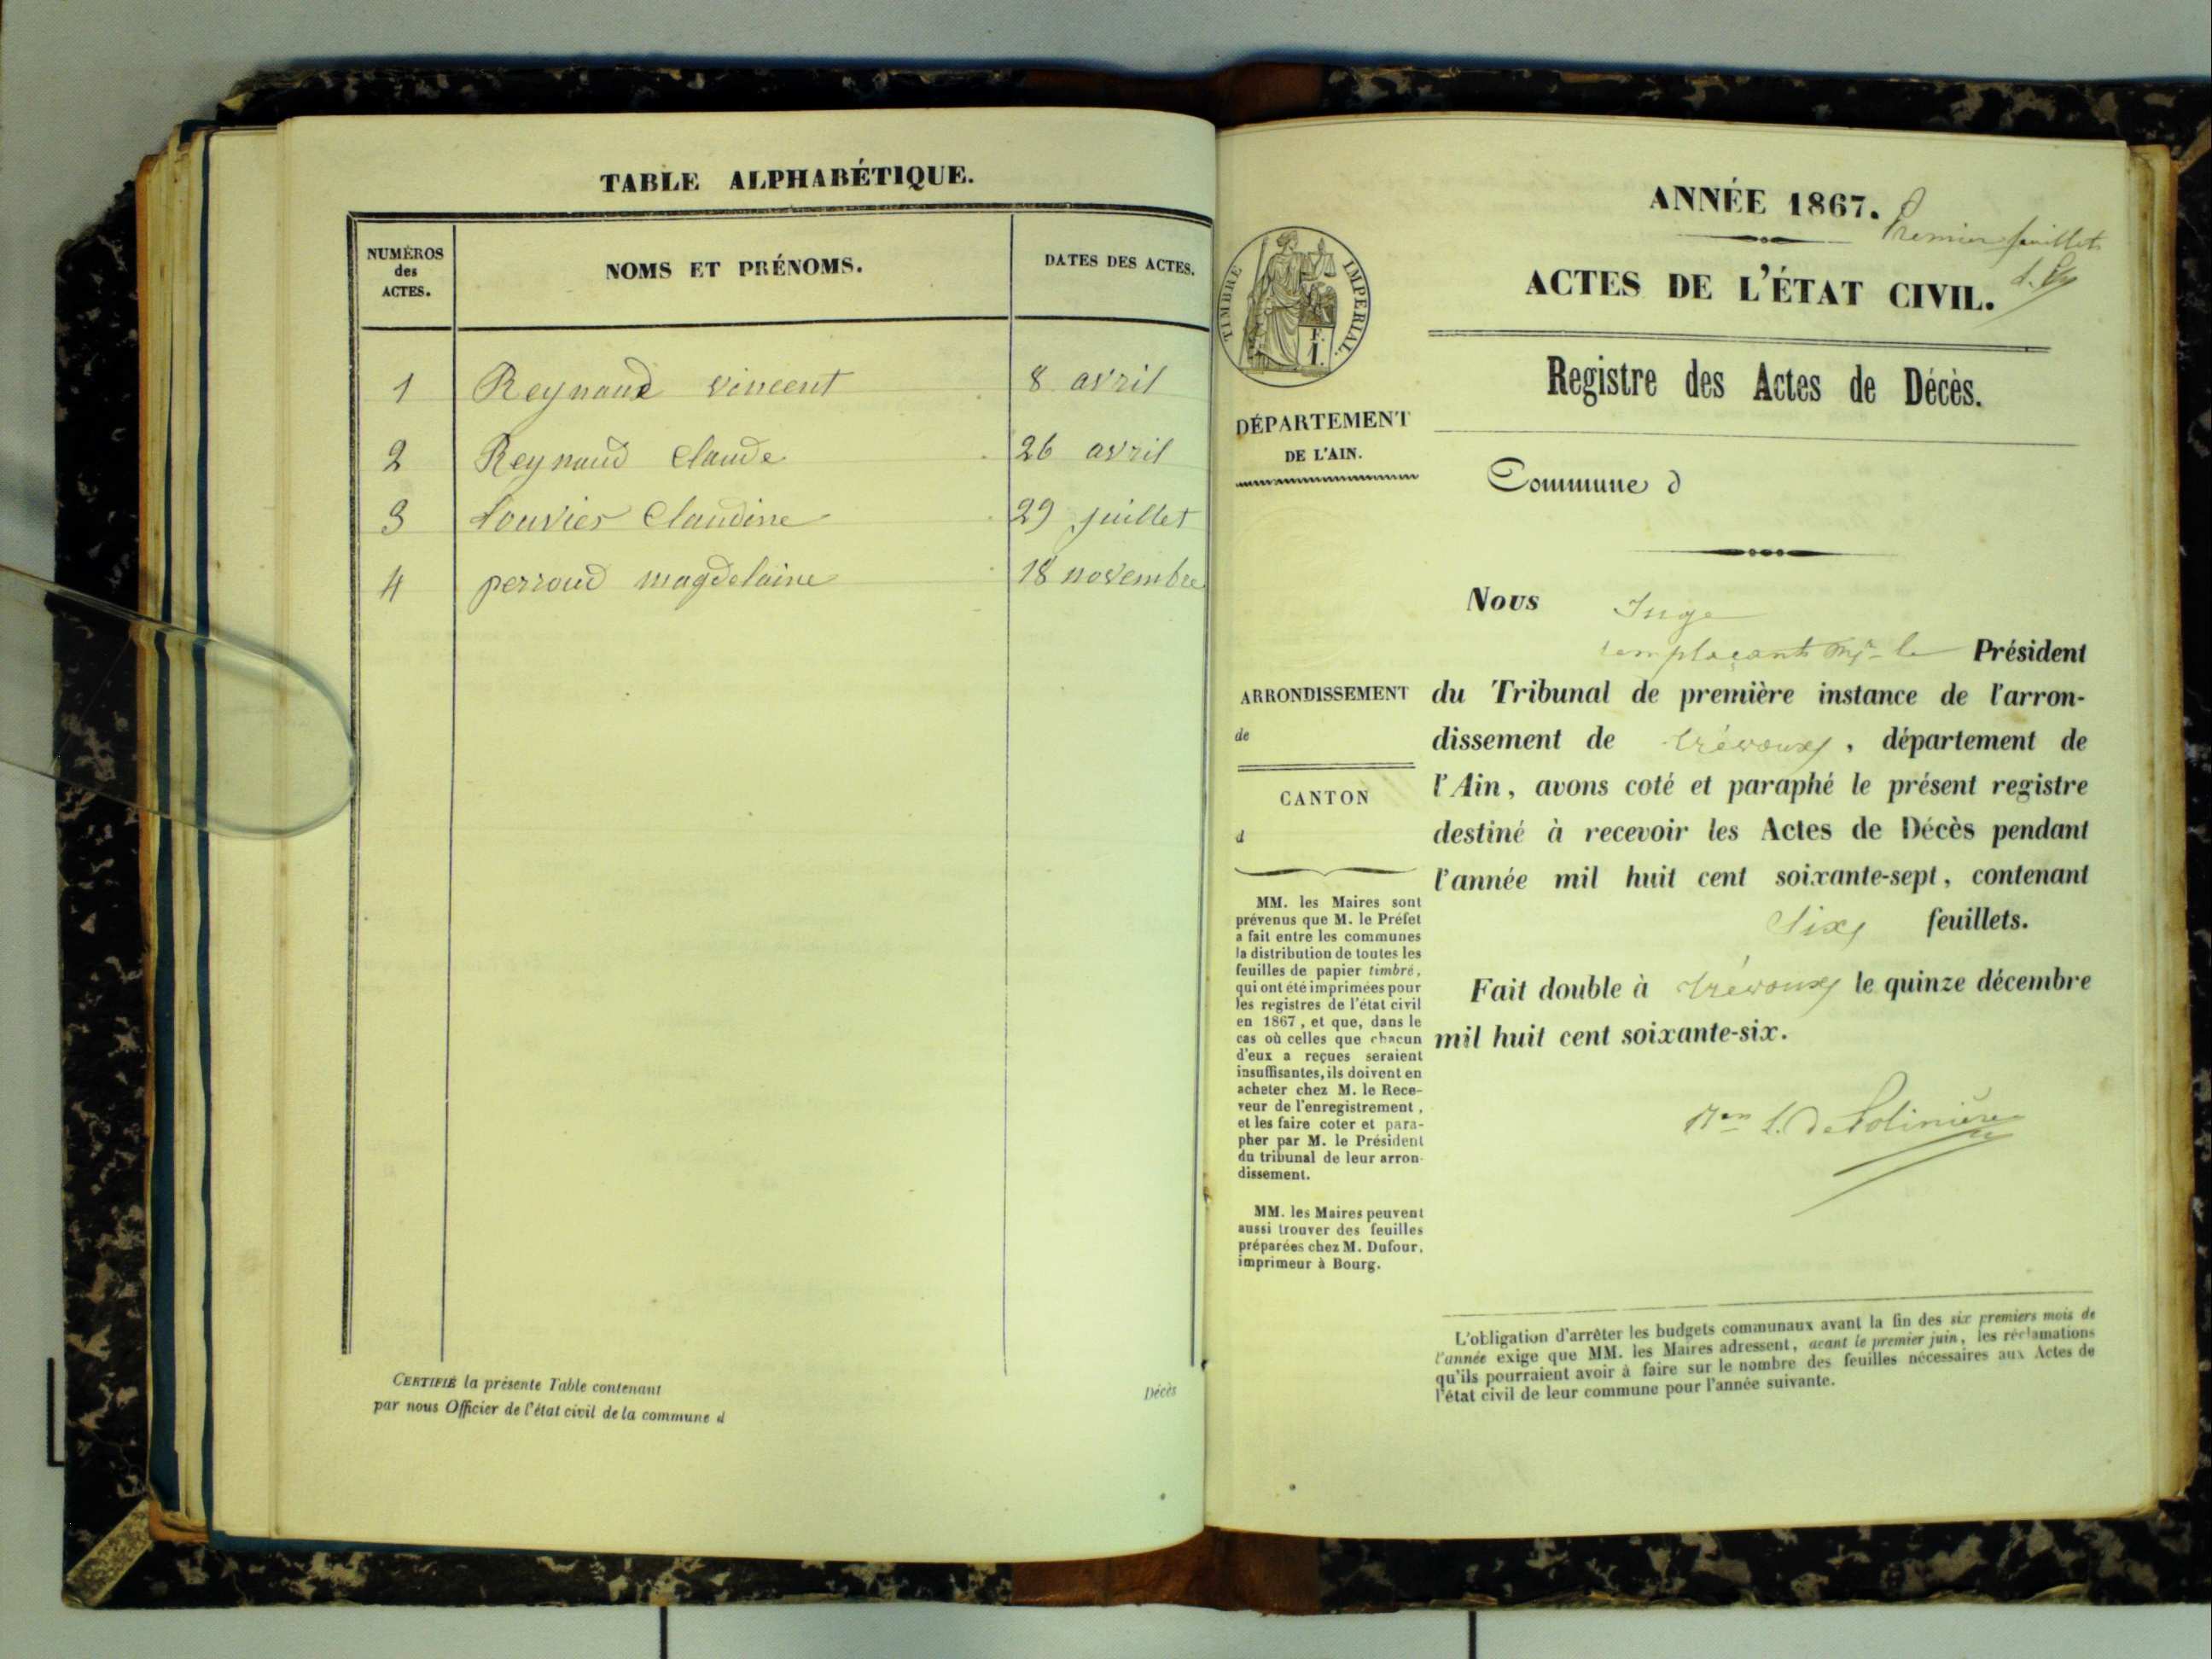 TABLE ALPHABÉTIQUE.
NUMÉROS des ACTES.
NOMS ET PRÉNOMS.
DATES DES ACTES.
1 Reynaud vincent 8 avril
2 Reynaud Claude 26 avril
3 Louvier Claudine 29 juillet
4 perroud magdelaine 18 novembre
CERTIFIÉ la présente Table contenant
par nous Officier de l'état civil de la commune d
Décès
ANNÉE 1867.
Premier feuillet
ACTES DE L'ÉTAT CIVIL.
TIMBRE IMPÉRIAL.
Registre des Actes de Décès.
DÉPARTEMENT
DE L'AIN.
Commune d
Nous Juge
remplaçant Mr le Président
ARRONDISSEMENT
de
CANTON
d
du Tribunal de première instance de l'arron-
dissement de trévoux, département de
l'Ain, avons coté et paraphé le présent registre
destiné à recevoir les Actes de Décès pendant
l'année mil huit cent soixante-sept, contenant
Six feuillets.
Fait double à trévoux le quinze décembre
mil huit cent soixante-six.
MM. les Maires sont
prévenus que M. le Préfet
a fait entre les communes
la distribution de toutes les
feuilles de papier timbré,
qui ont été imprimées pour
les registres de l'état civil
en 1867, et que, dans le
cas où celles que chacun
d'eux a reçues seraient
insuffisantes, ils doivent en
acheter chez M. le Rece-
veur de l'enregistrement,
et les faire coter et para-
pher par M. le Président
du tribunal de leur arron-
dissement.
MM. les Maires peuvent
aussi trouver des feuilles
préparées chez M. Dufour,
imprimeur à Bourg.
L'obligation d'arrêter les budgets communaux avant la fin des six premiers mois de
l'année exige que MM. les Maires adressent, avant le premier juin, les réclamations
qu'ils pourraient avoir à faire sur le nombre des feuilles nécessaires aux Actes de
l'état civil de leur commune pour l'année suivante.